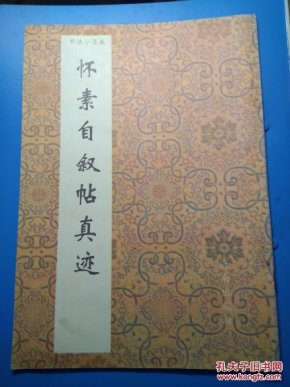 书法小集成
怀素自叙帖真迹
孔夫子旧书网